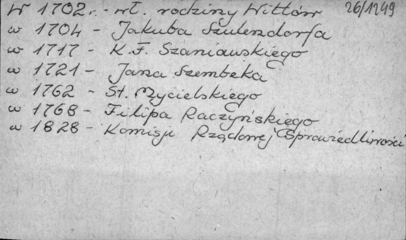 W 1702 r. - wł. rodziny Wittów 26/1249
w 1704 - Jakuba Szulendorfa
w 1717 - K.F. Szaniawskiego
w 1721 - Jana Szembeka
w 1762 - St. Mycielskiego
w 1768 - Filipa Raczyńskiego
w 1828 - Komisji Rządowej Sprawiedliwości